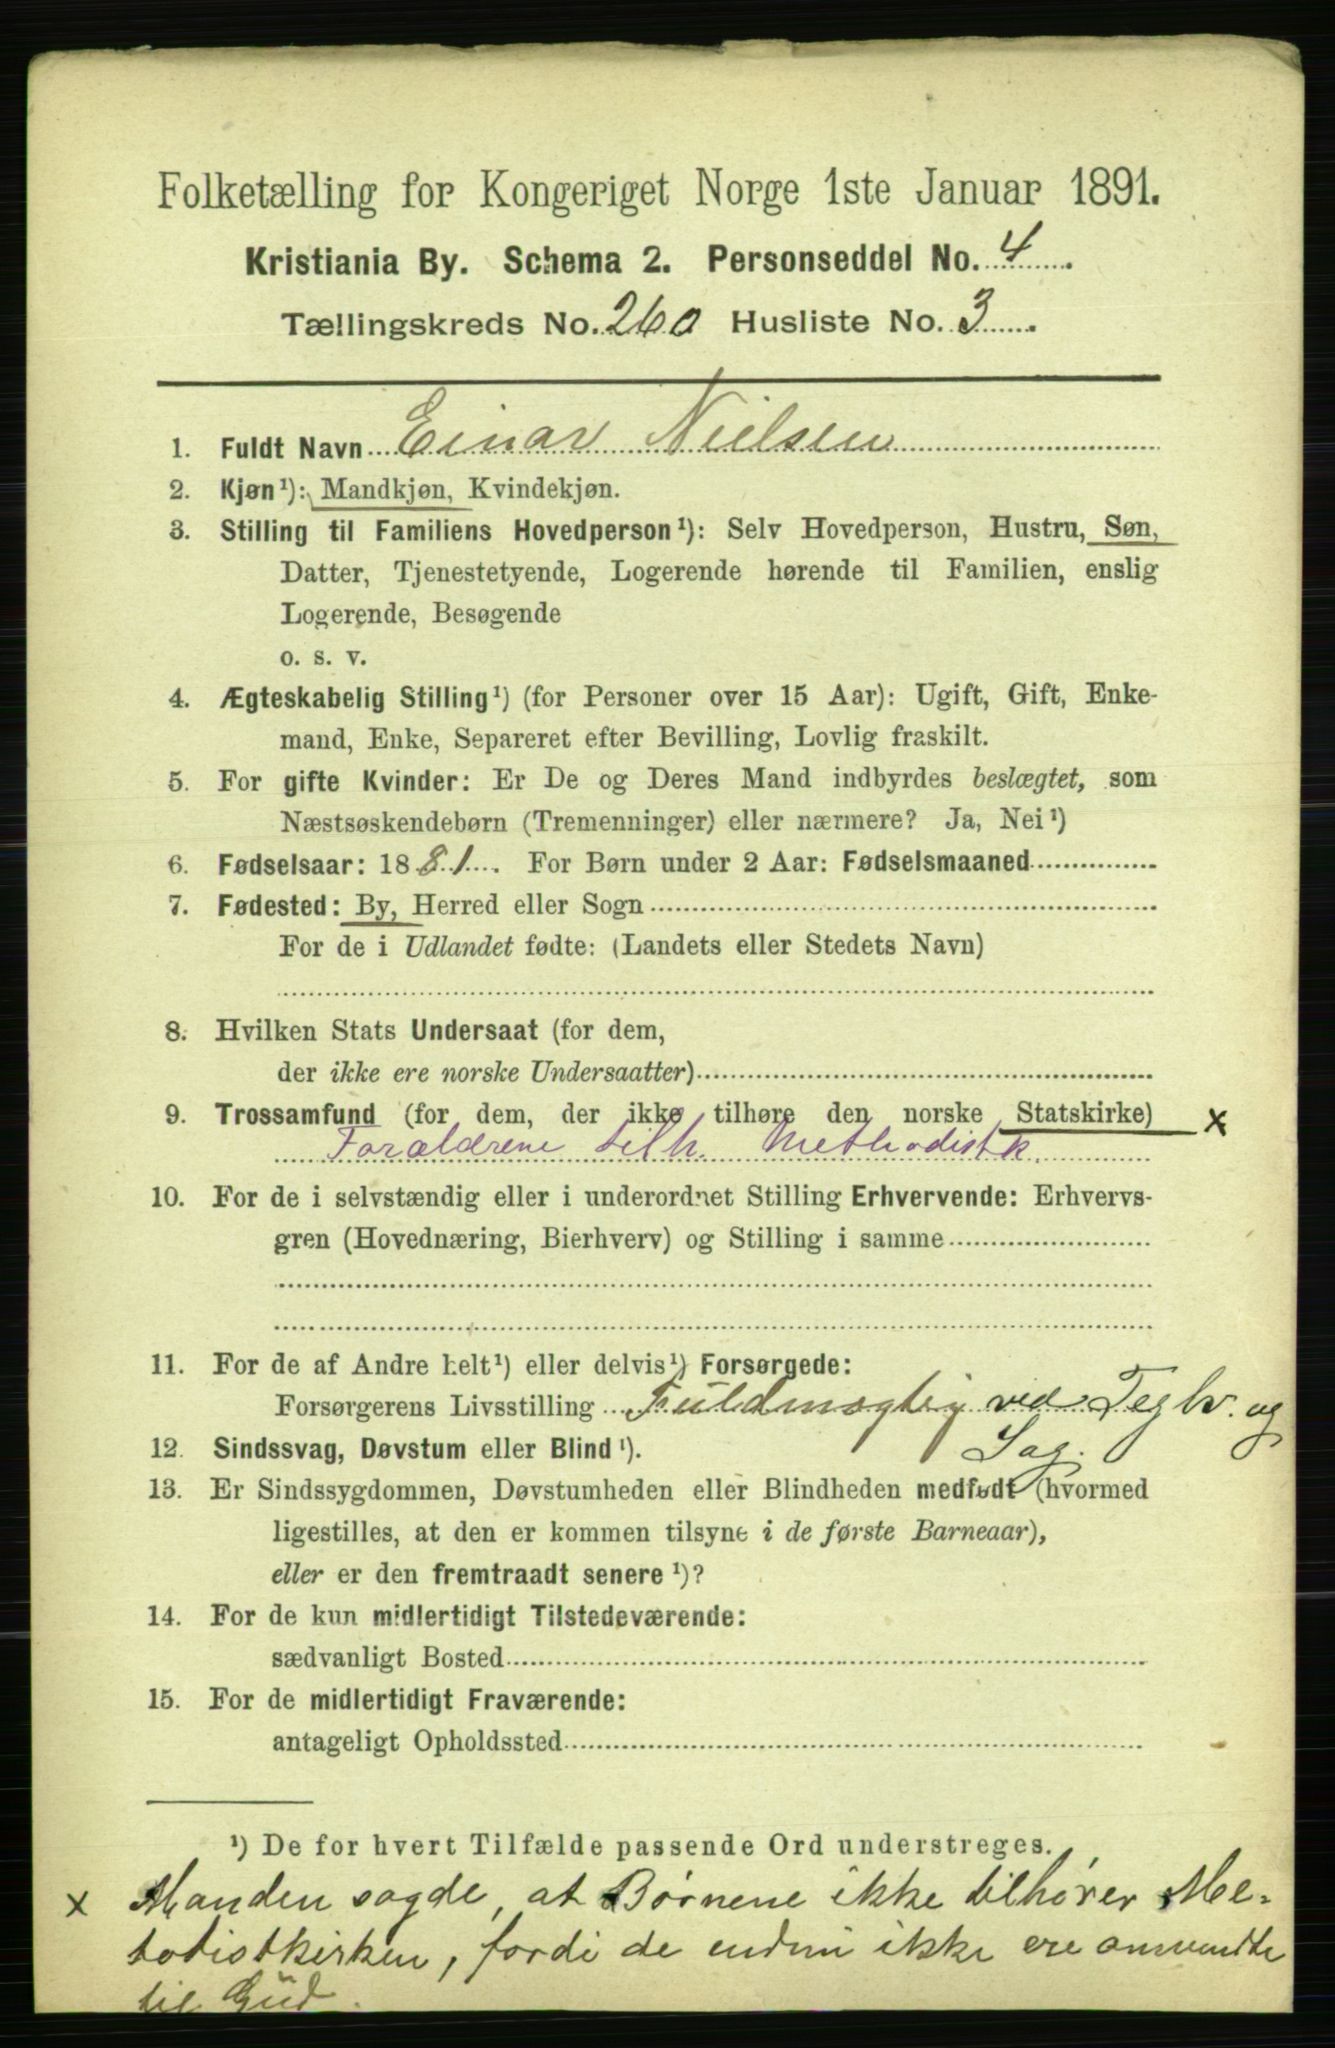 Folketælling for Kongeriget Norge 1ste Januar 1891.
Kristiania By. Schema 2. Personseddel No. 4
Tællingskreds No. 260 Husliste No. 3
1. Fuldt Navn Einar Nielsen
2. Kjøn¹): Mandkjøn, Kvindekjøn.
3. Stilling til Familiens Hovedperson¹): Selv Hovedperson, Hustru, Søn,
Datter, Tjenestetyende, Logerende hørende til Familien, enslig
Logerende, Besøgende
o. s. v.
4. Ægteskabelig Stilling¹) (for Personer over 15 Aar): Ugift, Gift, Enke-
mand, Enke, Separeret efter Bevilling, Lovlig fraskilt.
5. For gifte Kvinder: Er De og Deres Mand indbyrdes beslægtet, som
Næstsøskendebørn (Tremenninger) eller nærmere? Ja, Nei¹)
6. Fødselsaar: 1881. For Børn under 2 Aar: Fødselsmaaned
7. Fødested: By, Herred eller Sogn
For de i Udlandet fødte: (Landets eller Stedets Navn)
8. Hvilken Stats Undersaat (for dem,
der ikke ere norske Undersaatter)
9. Trossamfund (for dem, der ikke tilhøre den norske Statskirke) x
Forældrene tilh. Methodistk.
10. For de i selvstændig eller i underordnet Stilling Erhvervende: Erhvervs-
gren (Hovednæring, Bierhverv) og Stilling i samme
11. For de af Andre helt¹) eller delvis¹) Forsørgede:
Forsørgerens Livsstilling Fuldmægtig ved Teglv. og
Sag.
12. Sindssvag, Døvstum eller Blind¹).
13. Er Sindssygdommen, Døvstumheden eller Blindheden medfødt (hvormed
ligestilles, at den er kommen tilsyne i de første Barneaar),
eller er den fremtraadt senere¹)?
14. For de kun midlertidigt Tilstedeværende:
sædvanligt Bosted
15. For de midlertidigt Fraværende:
antageligt Opholdssted
¹) De for hvert Tilfælde passende Ord understreges.
x Manden sagde, at Børnene ikke tilhører Me-
todistkirken, fordi de endnu ikke ere omvendte
til Gud.